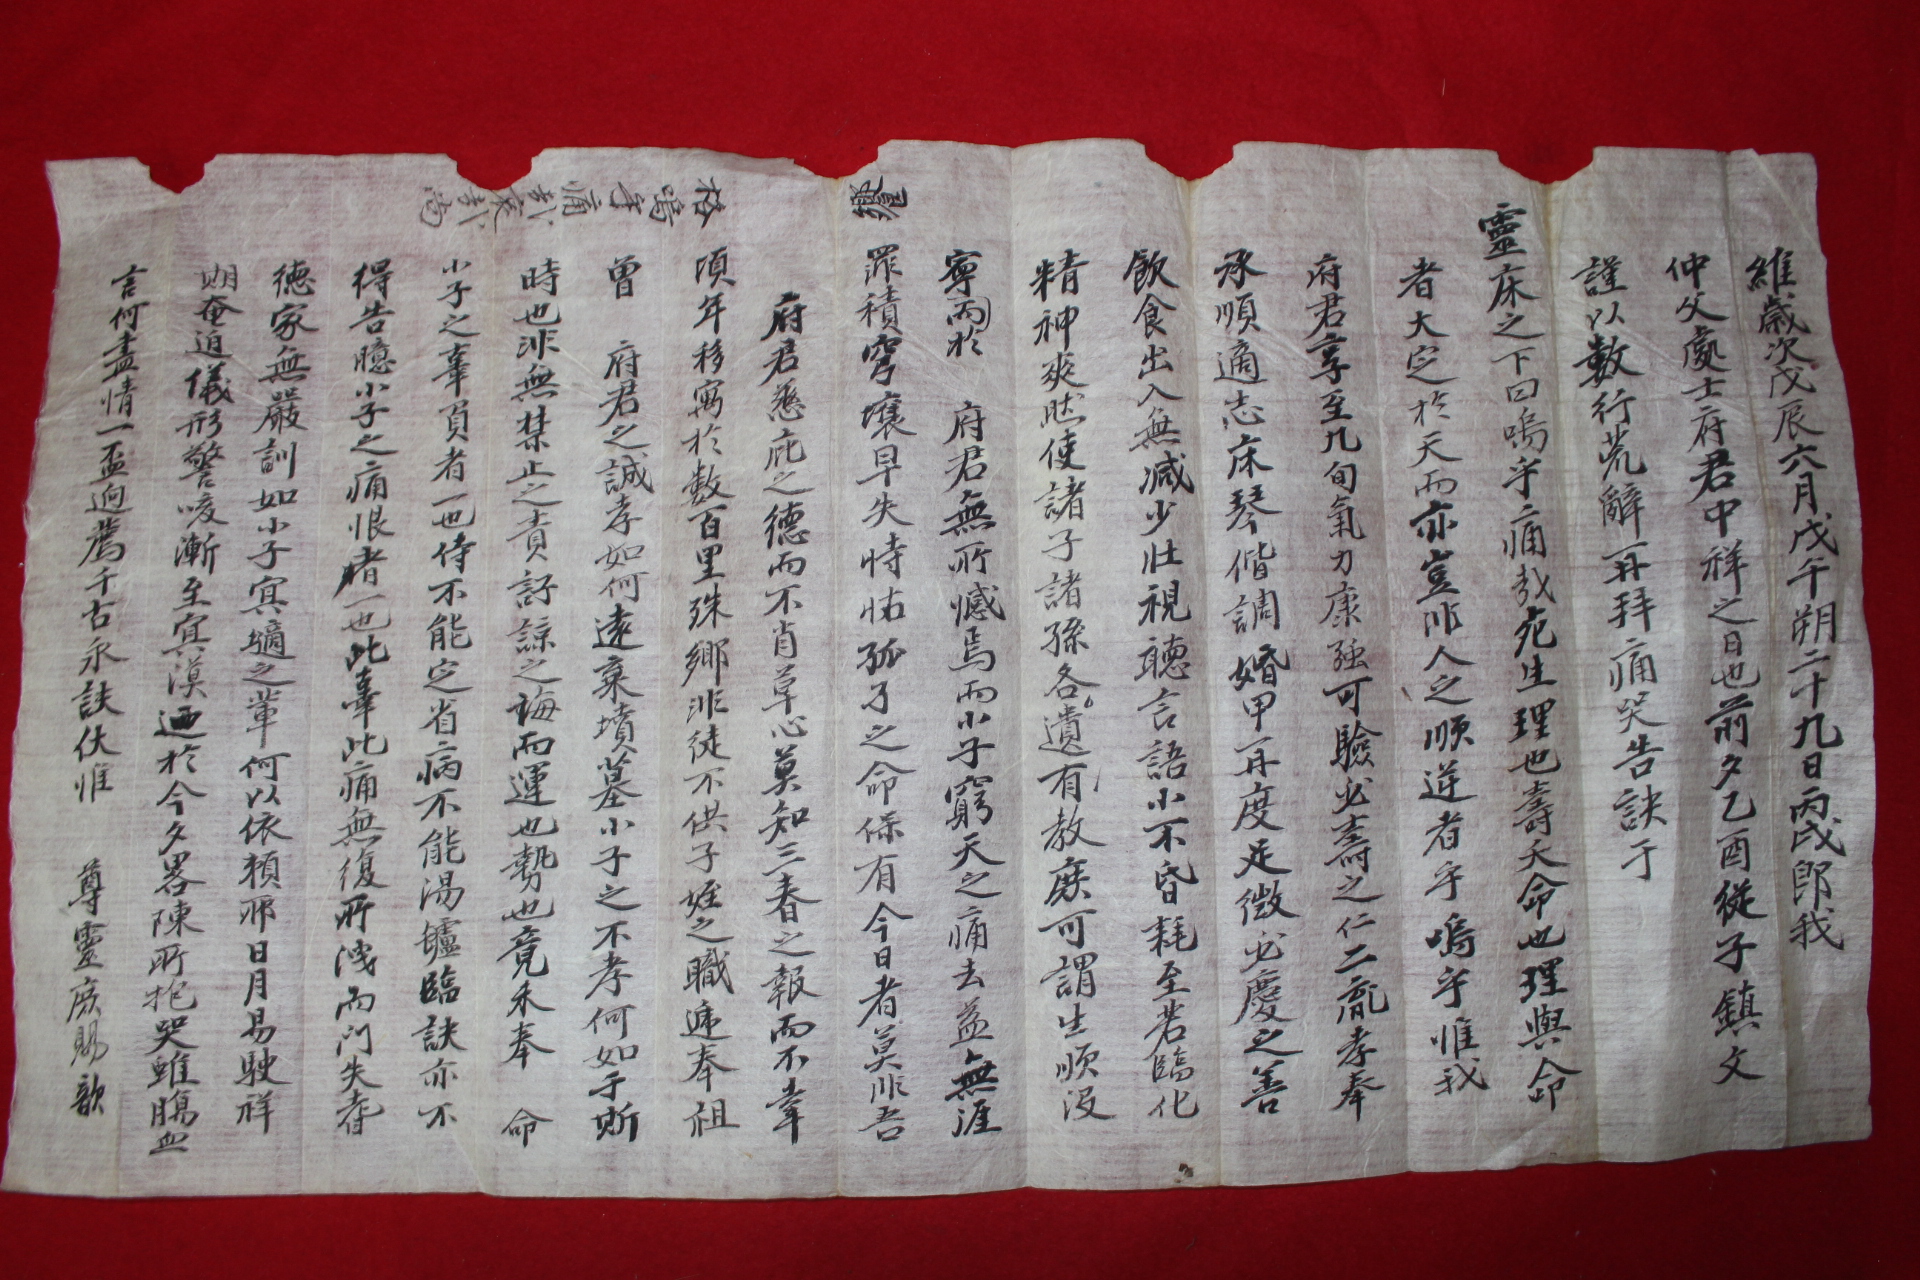 維歲次戊辰六月戊午朔二十九日丙戌卽我
仲父處士府君中祥之日也前夕乙酉從子鎭文
謹以數行荒辭再拜痛哭告訣于
靈床之下曰嗚乎痛哉死生理也壽夭命也理與命
者大定於天而亦豈非人之順逆者乎嗚乎惟我
府君享至九旬氣力康强可驗必壽之仁二胤孝奉
承順適志床琴偕調婚甲再度足徵必慶之善
飮食出入無减少壯視聽言語小不昏耗至若臨化
精神爽然使諸子諸孫各遺有敎庶可謂生順沒
寧而於 府君無所憾焉而小子窮天之痛去益無涯
纏
罪積穹壤早失怙恃孤子之命保有今日者莫非吾
府君慈庇之德而不肖草心莫知三春之報而不幸
頃年移寓於數百里殊鄉非徒不供子姪之職遞奉祖
曾 府君之誠孝如何遠棄墳墓小子之不孝何如于斯
時也非無禁止之責訝諒之誨而運也勢也竟未奉 命
小子之辜負者一也侍不能定省病不能湯罏臨訣亦不
得告臆小子之痛恨者一也此辜此痛無復所洩而門失耆
德家無嚴訓如小子冥擿之輩何以依賴邪日月易駛祥
期奄迫儀形警咳漸至冥漠迺於今夕畧陳所抱哭雖腸血
言何盡情一盃逈薦千古永訣伏惟 尊靈庶賜歆
格嗚乎痛哉哀哉尙